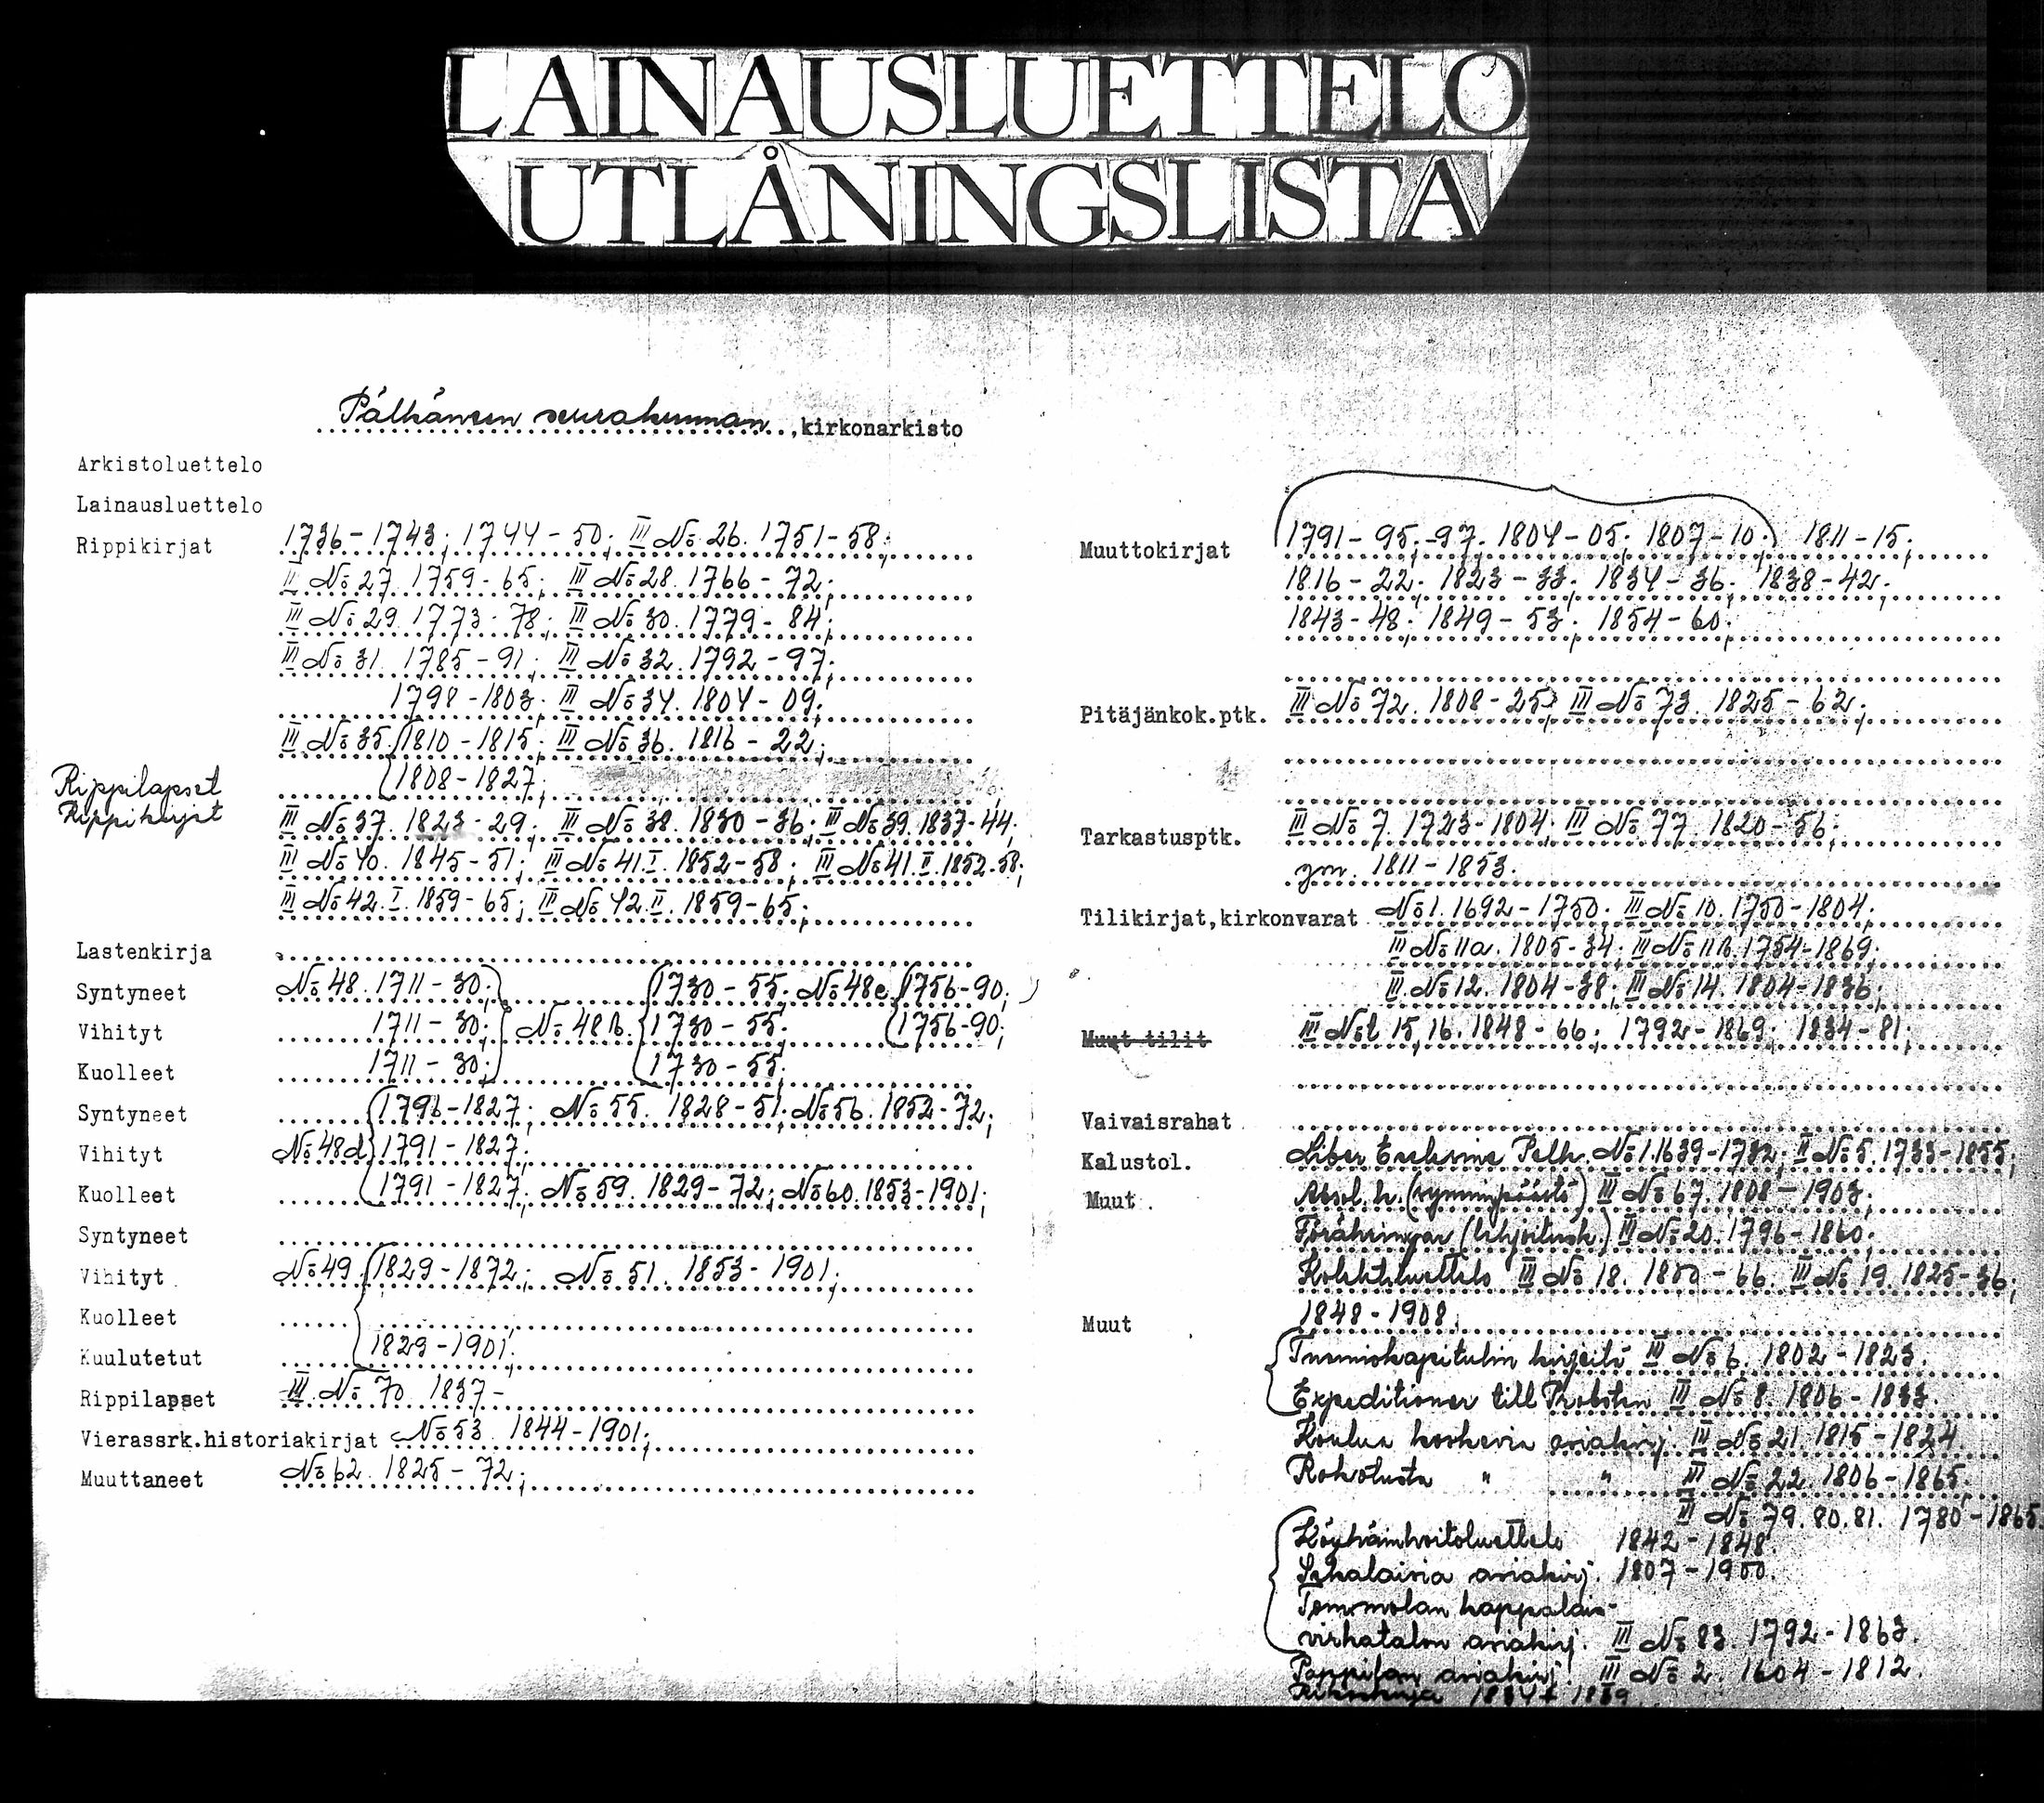 LAINAUSLUETTELO
UTLÅNINGSLISTA
Pälkäneen seurakunnan, kirkonarkisto
Arkistoluettelo
Lainausluettelo
Rippikirjat 1736-1743; 1744-50; III No 26. 1751-58;
II No 27. 1759-65; III No 28. 1766-72;
III No 29. 1773-78; III No 30. 1779-84;
III No 31. 1785-91; III No 32. 1792-97;
1798-1803; III No 34. 1804-09;
III No 35. 1810-1815; III No 36. 1816-22;
Rippilapset 1808-1827;
Rippikirjat III No 37. 1823-29; III No 38. 1830-36; III No 39. 1837-44;
III No 40. 1845-51; III No 41. I. 1852-58; III No 41. II. 1852-58;
III No 42. I. 1859-65; III No 42. II. 1859-65;
Lastenkirja
Syntyneet No 48. 1711-30; 1730-55; No 48c 1756-90;
Vihityt 1711-30; No 48b. 1730-55; 1756-90;
Kuolleet 1711-30; 1730-55;
Syntyneet 1796-1827; No 55. 1828-51; No 56. 1852-72;
Vihityt No 48d 1791-1827;
Kuolleet 1791-1827; No 59. 1829-72; No 60. 1853-1901;
Syntyneet
Vihityt No 49. 1829-1872; No 51. 1853-1901;
Kuolleet
Kuulutetut 1829-1901;
Rippilapset III No 70. 1837-
Vierassrk.historiakirjat No 53. 1844-1901;
Muuttaneet No 62. 1825-72;
Muuttokirjat 1791-95; -97. 1804-05; 1807-10; 1811-15;
1816-22; 1823-33; 1834-36; 1838-42;
1843-48; 1849-53; 1854-60;
Pitäjänkok.ptk. III No 72. 1808-25; III No 73. 1825-62;
Tarkastusptk. III No 7. 1723-1804; III No 77. 1820-56;
ym. 1811-1853.
Tilikirjat,kirkonvarat No 1. 1692-1750. III No 10. 1750-1804;
III No 11a. 1805-34; III No 11b. 1754-1869;
III No 12. 1804-38; III No 14. 1804-1836;
Muut tilit III No 15, 16. 1848-66; 1792-1869; 1834-81;
Vaivaisrahat
Kalustol. Liber Ecclesiae Pelk. No 1. 1639-1732; II No 5. 1733-1855;
Muut Absol.k. (synninpäästö) III No 67. 1808-1903;
Föräringar (lahjoitusk.) III No 20. 1796-1860;
Kolehtiluettelo III No 18. 1800-66. III No 19. 1825-36;
Muut 1848-1908.
Tuomiokapitulin kirjeitä III No 6. 1802-1823.
Expeditioner till Probsten III No 8. 1806-1833.
Koulua koskevia asiakirj. III No 21. 1815-1824.
Rokotusta " " III No 22. 1806-1865;
III No 79. 80. 81. 1780-1865.
Köyhäinhoitoluettelo 1842-1848.
Sekalaisia asiakirj. 1807-1900.
Tommolan kappalais-
virkatalon asiakirj. III No 83. 1792-1863.
Pappilan asiakirj. III No 2. 1604-1812.